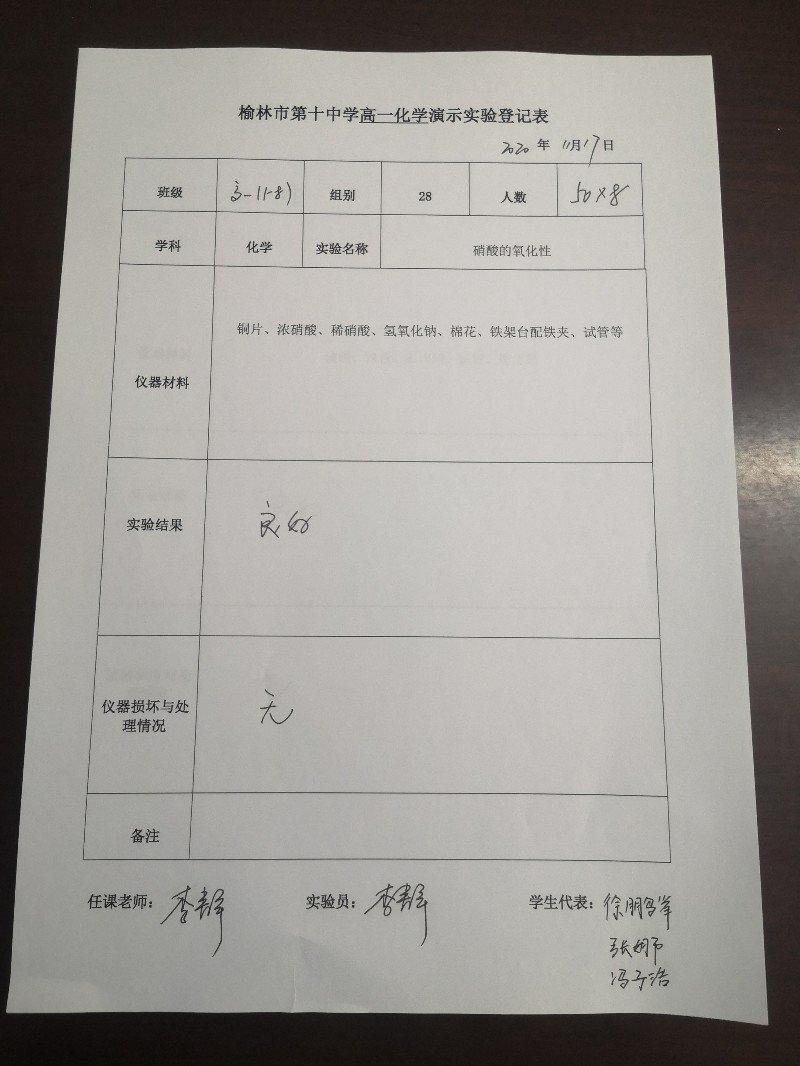 榆林市第十中学高一化学演示实验登记表
2020 年 11月17日
班级 高一(1-8) 组别 28 人数 50×8
学科 化学 实验名称 硝酸的氧化性
仪器材料 铜片、浓硝酸、稀硝酸、氢氧化钠、棉花、铁架台配铁夹、试管等
实验结果 良好
仪器损坏与处
理情况 无
备注
任课老师: 李静 实验员: 李静 学生代表: 徐朋
张娜
冯子浩